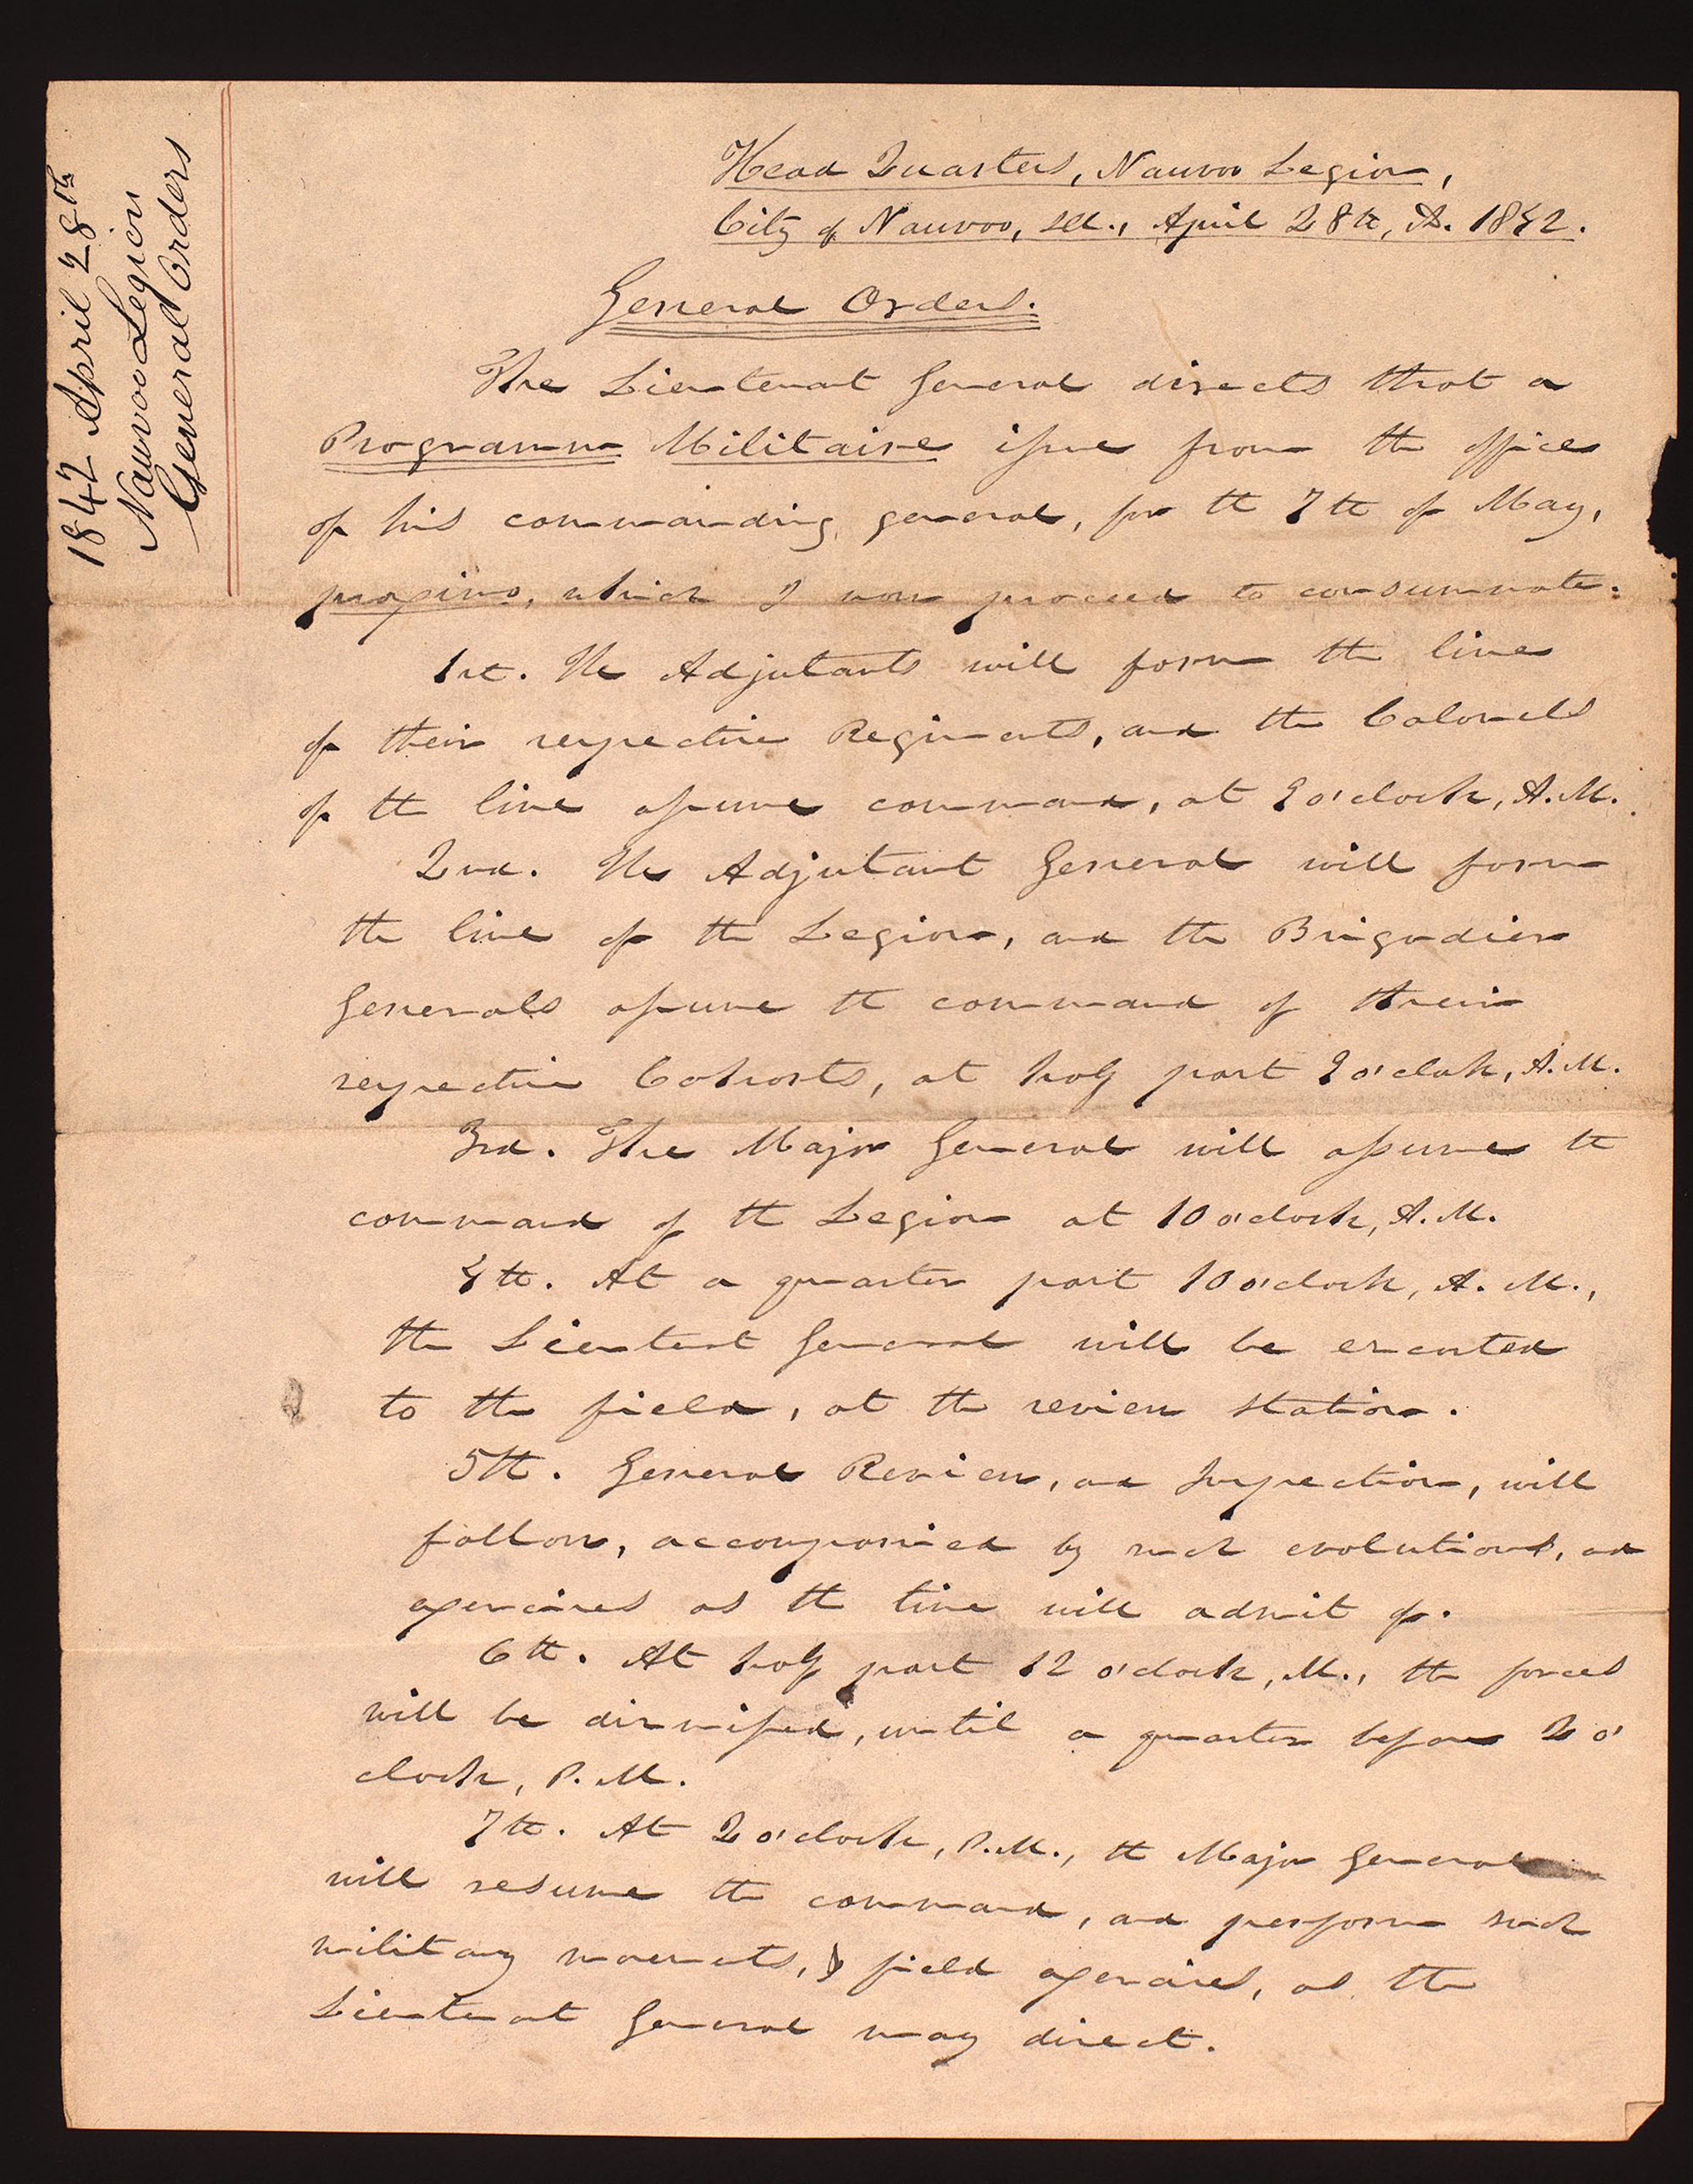 1842 April 28th
Nauvoo Legion
General Orders
Head Quarters, Nauvoo Legion,
City of Nauvoo, Ill., April 28th, A. 1842.
General Orders.
The Lieutenant General directs that a
Programme Militaire issue from the office
of his commanding general, for the 7th of May,
proximo, which I now proceed to consummate.
1st. The Adjutants will form the line
of their respective Regiments, and the Colonels
of the line assume command, at 9 o'clock, A.M.
2nd. The Adjutant General will form
the line of the Legion, and the Brigadier
Generals assume the command of their
respective Cohorts, at half past 9 o'clock, A.M.
3rd. The Major General will assume the
command of the Legion at 10 o'clock, A.M.
4th. At a quarter past 10 o'clock, A.M.,
the Lieutenant General will be escorted
to the field, at the review station.
5th. General Review, and Inspection, will
follow, accompanied by such evolutions, and
exercises as the time will admit of.
6th. At half past 12 o'clock, M., the forces
will be dismissed, until a quarter before 2 o'
clock, P.M.
7th. At 2 o'clock, P.M., the Major General
will resume the command, and perform such
military movements, & field exercises, as the
Lieutenant General may direct.